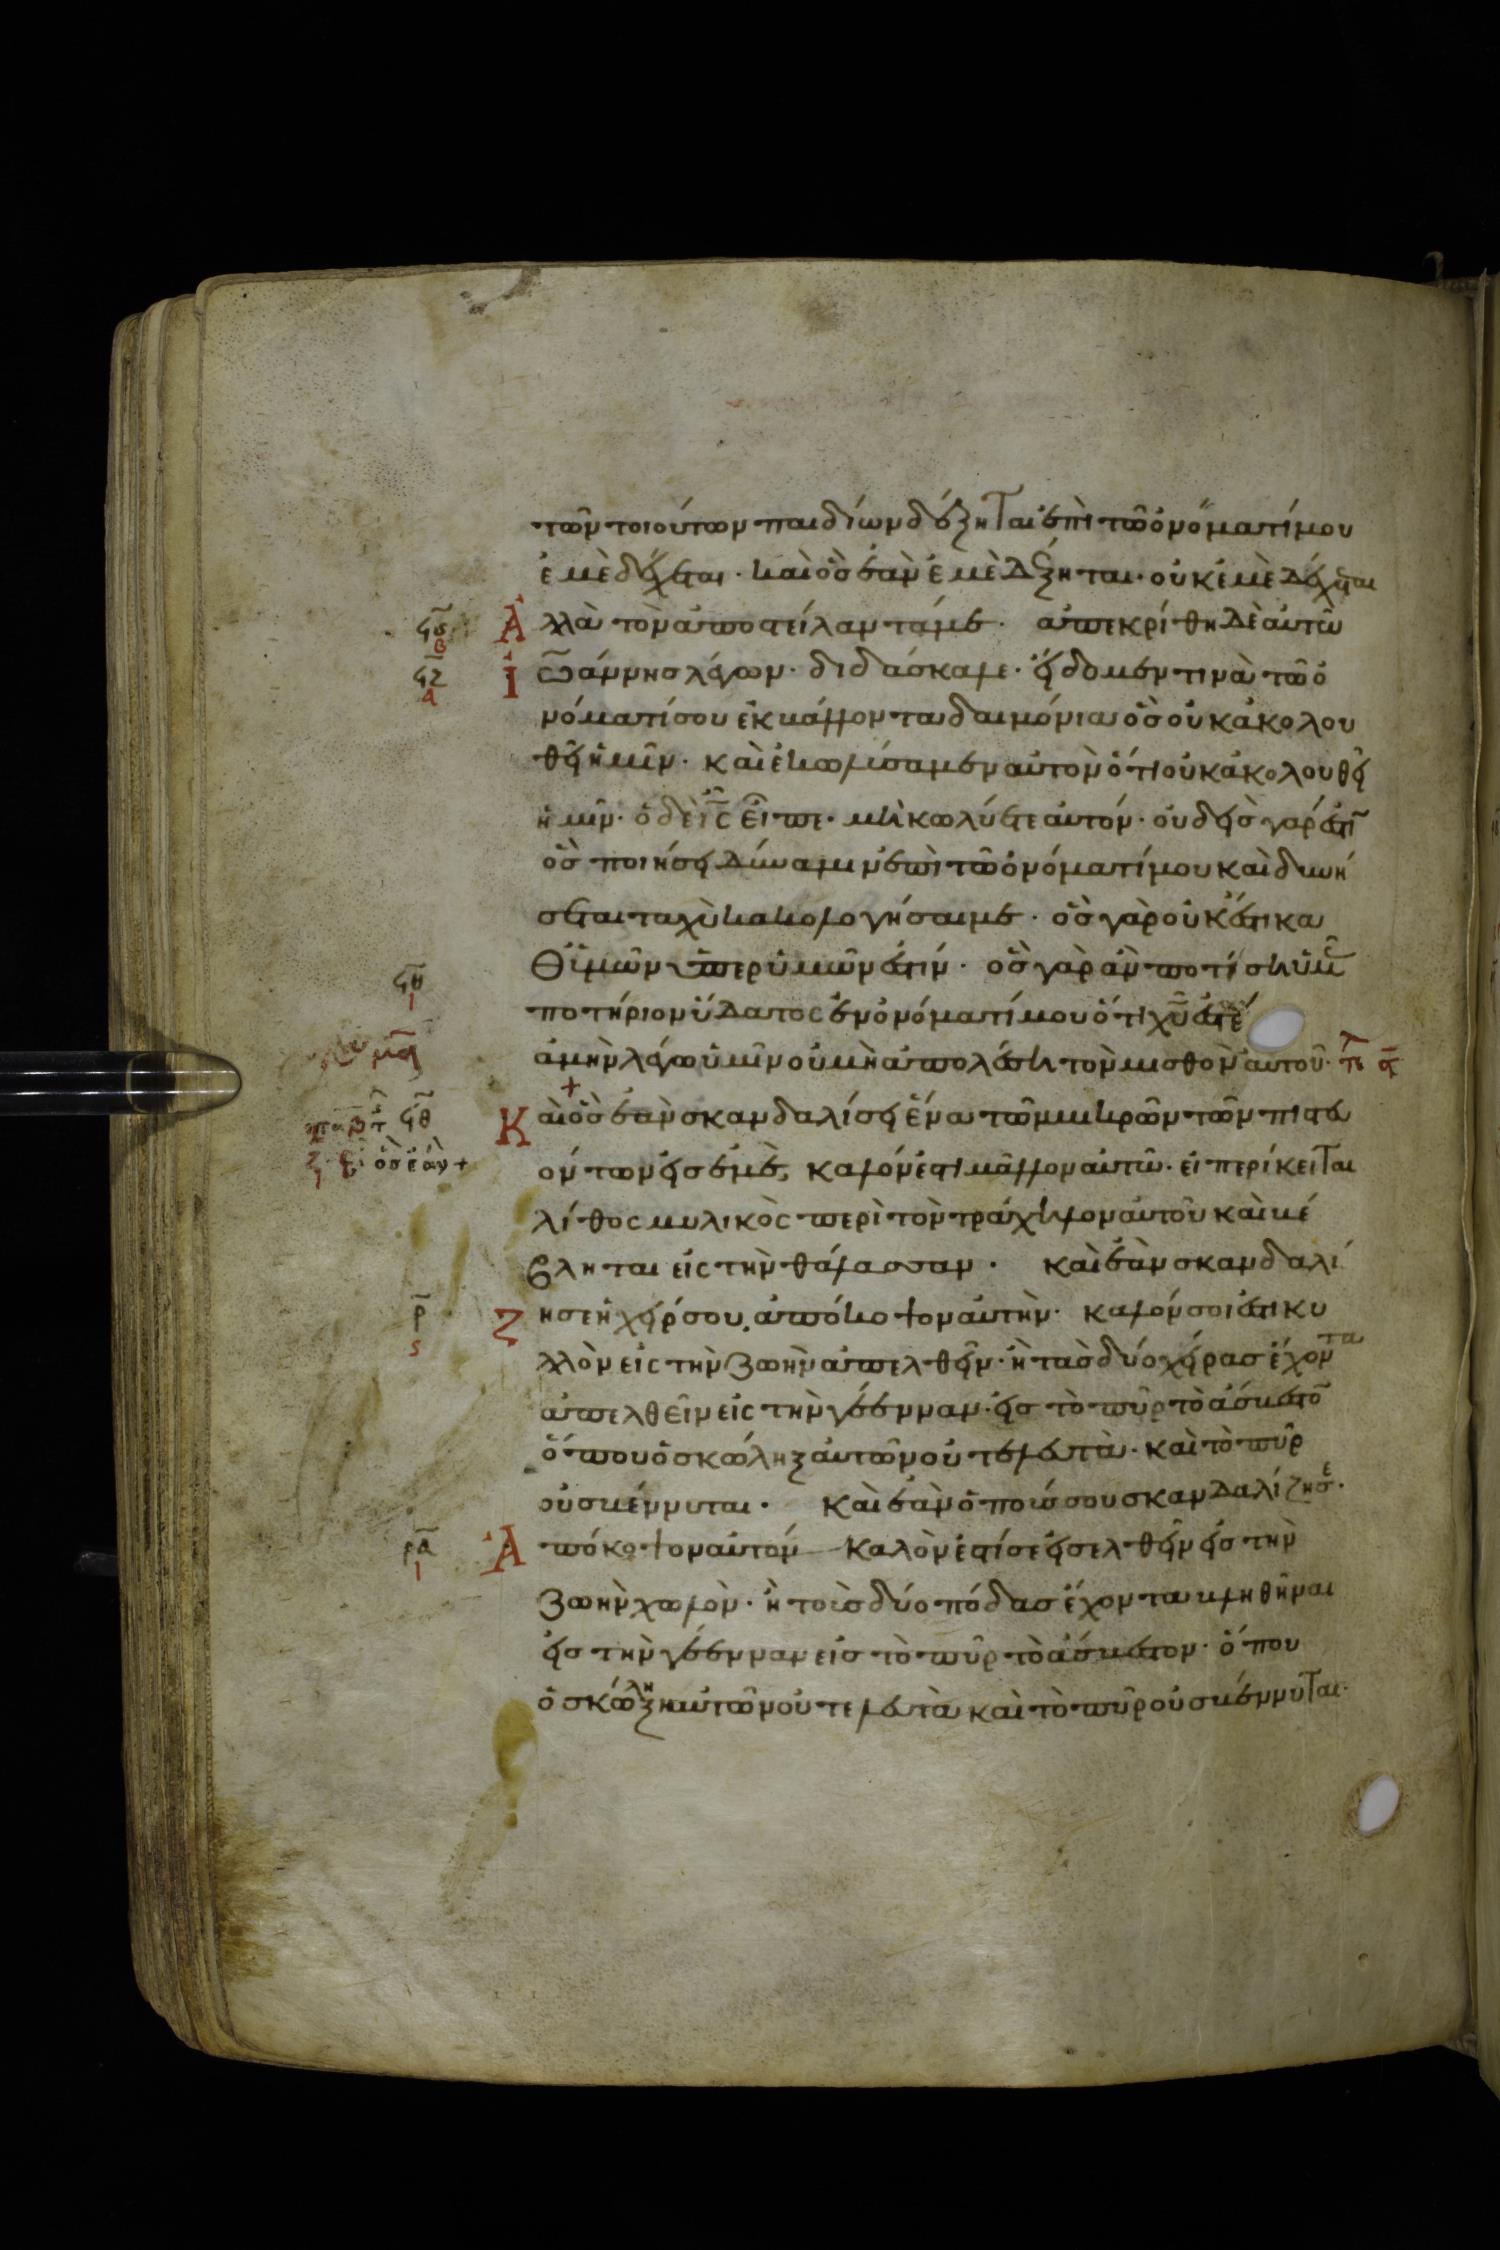 τῶν τοιούτων παιδίων δέξηται ἐπὶ τῶ ὀνόματί μου
ἐμὲ δέχεται· καὶ ὃς ἐὰν ἐμὲ δέξηται· οὐκ ἐμὲ δέχεται
Ἀλλὰ τὸν ἀποστείλαντά με· ἀπεκρίθη δὲ αὐτῶ
Ἰωάννης λέγων· διδάσκαλε· εἴδομέν τινὰ τῶ ὀ
νόματί σου ἐκβάλλοντα δαιμόνια ὃς οὐκ ἀκολου
θεῖ ἡμῖν· καὶ ἐκωλύσαμεν αὐτὸν ὅτι οὐκ ἀκολουθεῖ
ἡμῖν· ὁ δὲ ι̅ς̅ εἶπε· μὴ κωλύετε αὐτόν· οὐδεὶς γάρ ἐστι
ὃς ποιήσει δύναμιν ἐπὶ τῶ ὀνόματί μου καὶ δυνή
σεται ταχὺ κακολογῆσαι με· ὃς γὰρ οὐκ ἔστι κα
θ' ὑμῶν ὑπὲρ ὑμῶν ἐστίν· ὃς γὰρ ἂν ποτίση ὑμᾶς
ποτήριον ὕδατος ἐν ὀνόματί μου ὅτι χ̅υ̅ ἐστέ
ἀμὴν λέγω ὑμῖν οὐ μὴ ἀπολέση τὸν μισθὸν αὐτοῦ·
Καὶ ὃς ἐὰν σκανδαλίσει ἕνα τῶν μικρῶν τῶν πιστευ
όντων εἰς ἐμέ, καλόν ἐστι μᾶλλον αὐτῶ· εἰ περίκειται
λίθος μυλικὸς περὶ τὸν τράχηλον αὐτοῦ καὶ βέ
βληται εἰς τὴν θάλασσαν· καὶ ἐὰν σκανδαλί
ζησε ἡ χείρ σου, ἀπόκοψον αὐτὴν· καλόν σοι ἐστι κυ
λλὸν εἰς τὴν ζωὴν ἀπελθεῖν· ἢ τὰς δύο χεῖρας ἔχοντα
ἀπελθεῖν εἰς τὴν γέενναν· εἰς τὸ πῦρ τὸ ἄσβεστον
ὅπου ὁ σκώληξ αὐτῶν οὐ τελευτὰ· καὶ τὸ πῦρ
οὐ σβέννυται· καὶ ἐὰν ὁ ποῦς σου σκανδαλίζησε·
Ἀπόκοψον αὐτόν καλὸν ἐστί σε εἰσελθεῖν εἰς τὴν
ζωὴν χωλὸν· ἢ τοὺς δύο πόδας ἔχοντα βληθῆναι
εἰς τὴν γέενναν εἰς τὸ πῦρ τὸ ἄσβεστον· ὅπου
ὁ σκώληξ αὐτῶν οὐ τελευτὰ καὶ τὸ πῦρ οὐ σβέννυται·